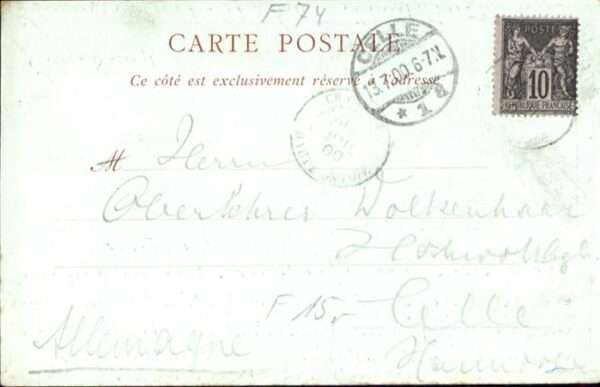 F 74
CARTE POSTALE
Ce côté est exclusivement réservé à l'adresse
CELLE
13.7.00.6-7N.
* 1 a
POSTE
10
RÉPUBLIQUE FRANÇAISE
M Herrn
Oberlehrer Wolkenhaar
F 15,-
Celle
Allemagne
Hannover